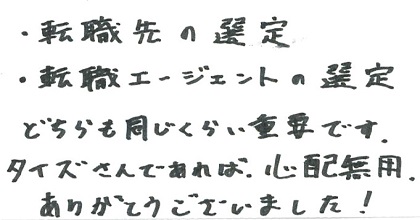 ・転職先の選定
・転職エージェントの選定
どちらも同じくらい重要です.
タイズさんであれば.心配無用.
ありがとうございました！